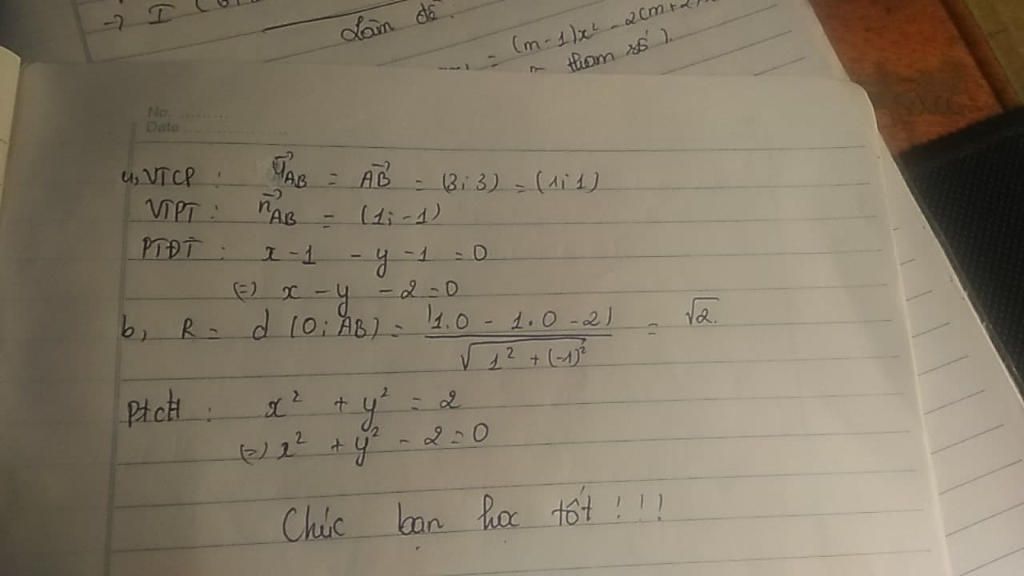 → I
dần đề.
= (m-1)x² - 2(m+2)
tham số).
No. ............
Date ....................
a, VTCP : u⃗AB = AB⃗ = (3; 3) = (1; 1)
VTPT : n⃗AB = (1; -1)
PTĐT : x - 1 - y - 1 = 0
(=) x - y - 2 = 0
b, R = d (O; AB) = |1.0 - 1.0 - 2| / √(1² + (-1)²) = √2.
Ptctt : x² + y² = 2
(=) x² + y² - 2 = 0
Chúc bạn học tốt !!!